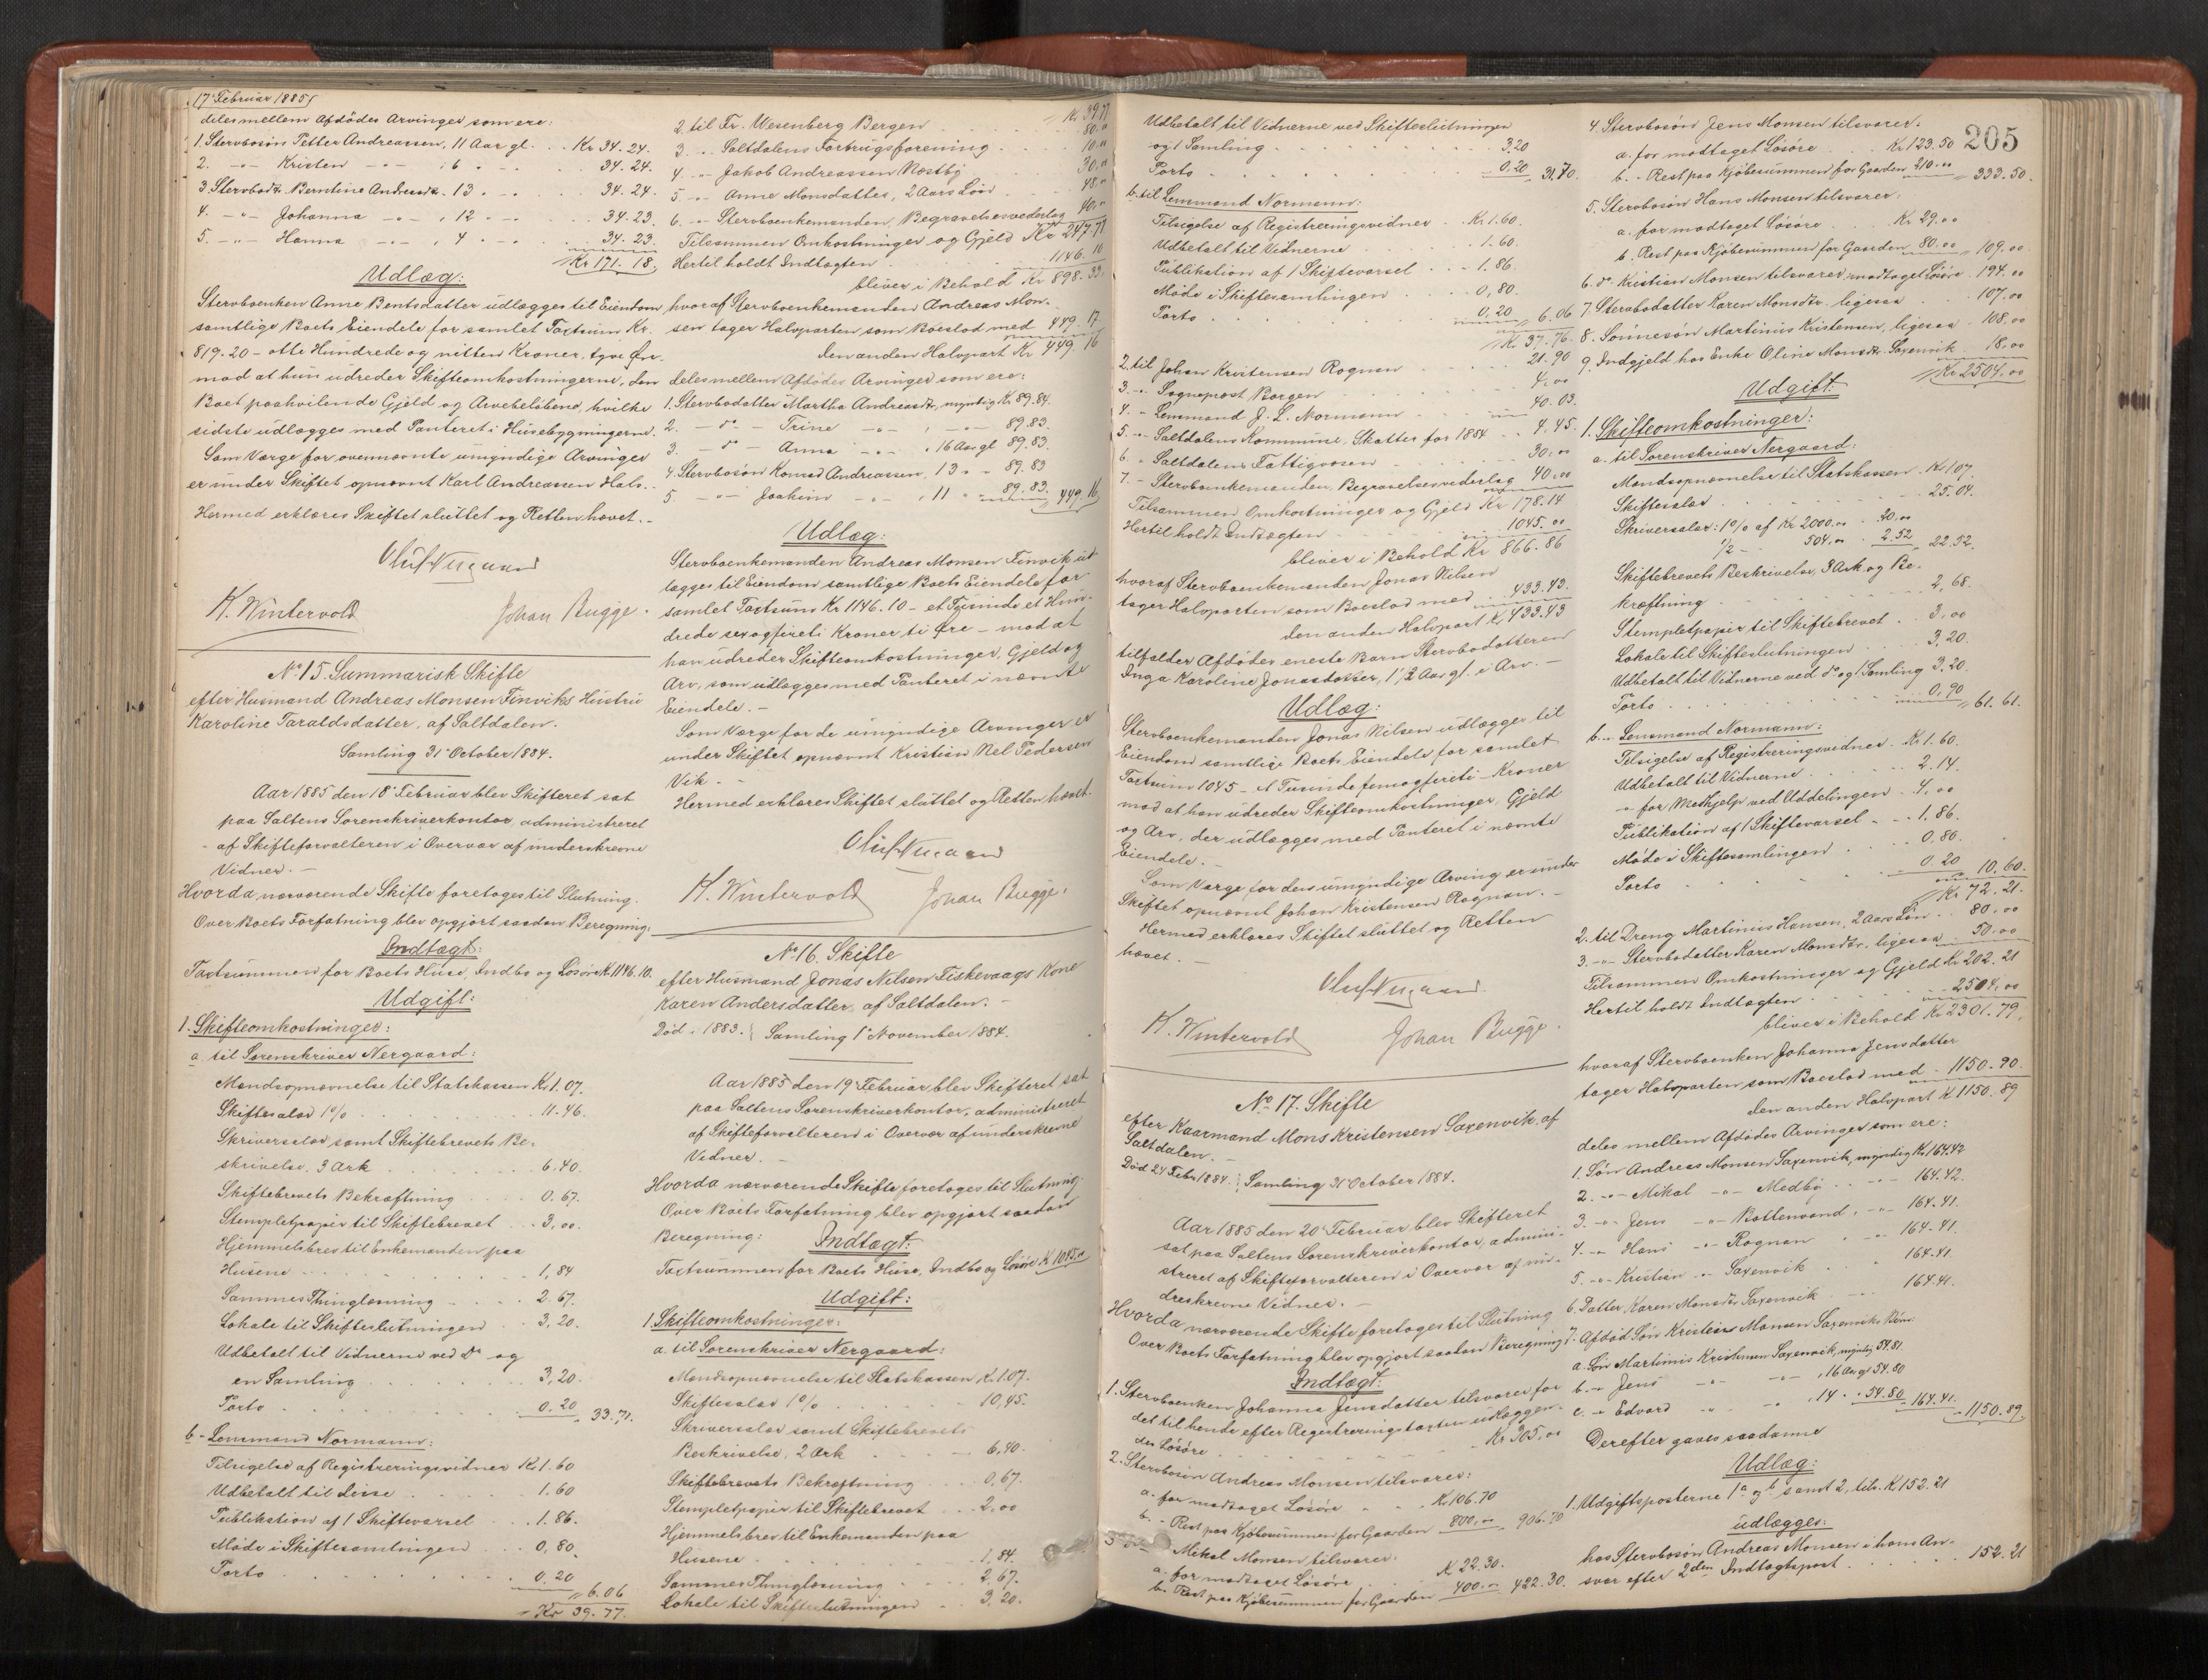 17' Februar 1885
deles mellem Afdødes Arvinger som ere:
1. Stervbosøn Petter Andreassen, 11 Aar gl. . . Kr 34.24.
2. -"- Kristen -"- , 6 " - . . 34.24.
3. Stervbodtr. Berntine Andreasdr. 13 " - . . 34.24
4. -"- Johanna -"- , 12 " - . . 34.23.
5. -"- Hanna -"- , 4 " - . . 34.23.
Kr 171.18.
Udlæg:
Stervboenken Anne Bentsdatter udlægges til Eiendom
samtlige Boets Eiendele for samlet Taxtsum Kr.
819.20 - otte Hundrede og nitten Kroner, tyve Øre -
mod at hun udreder Skifteomkostningerne, den
Boet paahvilende Gjeld og Arvebeløbene, hvilke
sidste udlægges med Panteret i Husebygningerne.
Som Værge for ovennævnte umyndige Arvinger
er under Skiftet opnævnt Karl Andreassen Hals.
Hermed erklæres Skiftet sluttet og Retten hævet. -
K. Wintervold Johan Bugge.
No 15. Summarisk Skifte
efter Husmand Andreas Monsen Finviks Hustru
Karoline Taraldsdatter, af Saltdalen.
Samling 31' October 1884.
Aar 1885 den 18' Februar blev Skifteret sat
paa Saltens Sorenskriverkontor, administreret
af Skifteforvalteren i Overvær af underskrevne
Vidner. -
Hvorda nærværende Skifte foretoges til Slutning.
Over Boets Forfatning blev opgjort saadan Beregning:
Indtægt:
Taxtsummen for Boets Huse, Indbo og Løsøre K. 1146.10.
Udgift:
1. Skifteomkostninger:
a. til Sorenskriver Nergaard:
Mandsopnævnelse til Statskassen Kr. 1.07.
Skiftesalær 1% . . . 11.46.
Skriversalær samt Skiftebrevets Be-
skrivelse, 3 Ark . . . 6.40.
Skiftebrevets Bekræftning . . . 0.67.
Stempletpapir til Skiftebrevet . . 3,00.
Hjemmelsbrev til Enkemanden paa
Husene . . . 1,84
Sammes Thinglæsning . . . 2.67.
Lokale til Skifteslutningen . . 3,20.
Udbetalt til Vidnerne ved Do og
en Samling . . . 3,20.
Porto . . . 0.20 33.71.
b - Lensmand Normann:
Tilsigelse af Registreringsvidner Kr. 1.60
Udbetalt til disse . . . 1.60
Publikation af 1 Skiftevarsel . . . 1.86.
Møde i Skiftesamlingen . . . 0,80.
Porto . . . 0.20
6.06
Kr 39.77.
Kr 39.77
2. til Fr. Wesenberg Bergen . . . 80.00
3. " Saltdalens Forbrugsforening . . . 10.00
4. -"- Jakob Andreassen Næstby . . . 30,00
5. -"- Anne Monsdatter, 2 Aars Løn . . . 48.00
6. -"- Stervboenkemanden, Begravelsesvederlag 40.00
Tilsammen Omkostninger og Gjeld Kr 247.77
Hertil holdt Indtægten . . . 1146.10
bliver i Behold Kr 898.33
hvoraf Stervboenkemanden Andreas Mon-
sen tager Halvparten som Boeslod med 449.17
den anden Halvpart Kr 449.16
deles mellem Afdødes Arvinger som ere:
1. Stervbodatter Martha Andreasdtr, myndig Kr. 89.84.
2. - do - Trine -"- , -"- 89.83.
3. - do - Anna -"- , 16 Aar gl 89.83.
4. Stervbosøn Konrad Andreassen, 13 " - 89.83
5. -"- Joakim -"- , 11 " 89.83. 449.16
Udlæg:
Stervboenkemanden Andreas Monsen Finvik ud-
lægges til Eiendom samtlige Boets Eiendele for
samlet Taxtsum Kr 1146.10 - et Tusinde et Hun-
drede sexogfireti Kroner ti Øre - mod at
han udreder Skifteomkostninger, Gjeld og
Arv, som udlægges med Panteret i nævnte
Eiendele. -
Som Værge for de umyndige Arvinger er
under Skiftet opnævnt Kristian Nel Pedersen
Vik. -
Hermed erklæres Skiftet sluttet og Retten hævet.
K. Wintervold Johan Bugge.
No 16. Skifte
efter Husmand Jonas Nilsen Fiskevaags Kone
Karen Andersdatter, af Saltdalen. -
Død . 1883. Samling 1' November 1884.
Aar 1885 den 19' Februar blev Skifteret sat
paa Saltens Sorenskriverkontor, administreret
af Skifteforvalteren i Overvær af underskrevne
Vidner. -
Hvorda nærværende Skifte foretoges til Slutning.
Over Boets Forfatning blev opgjort saadan
Beregning:
Indtægt:
Taxtsummen for Boets Huse, Indbo og Løsøre K 1045.00
Udgift:
1. Skifteomkostninger:
a. til Sorenskriver Nergaard:
Mandsopnævnelse til Statskassen Kr. 1.07.
Skiftesalær 1% . . . 10,45.
Skriversalær samt Skiftebrevets
Beskrivelse, 2 Ark . . . 6.40.
Skiftebrevets Bekræftning . . . 0,67.
Stempletpapir til Skiftebrevet . . 2.00
Hjemmelsbrev til Enkemanden paa
Husene . . . 1,84.
Sammes Thinglæsning . . . 2.67.
Lokale til Skifteslutningen . . 3,20.
205
Udbetalt til Vidnerne ved Skifteslutningen
og 1 Samling . . . 3.20
Porto . . . 0.20 31.70.
b. til Lensmand Normann:
Tilsigelse af Registreringsvidner . Kr. 1.60.
Udbetalt til Vidnerne . . . 1.60.
Publikation af 1 Skiftevarsel . . . 1.86.
Møde i Skiftesamlingen . . . 0,80.
Porto . . . 0,20 6.06
Kr 37.76.
2. til Johan Kristensen Rognan . . . 21.90
3. -"- Sogneprest Borgen . . . 4.00
4. -"- Lensmand J. L. Normann . . . 40.03.
5. -"- Saltdalens Kommune, Skatter for 1884 . . 4.45.
6. " Saltdalens Fattigvæsen . . . 30.00
7. - Stervboenkemanden, Begravelsesvederlag 40,00
Tilsammen Omkostninger og Gjeld Kr 178.14
Hertil holdt Indtægten . . . 1045.00
bliver i Behold Kr 866.86
hvoraf Stervboenkemanden Jonas Nilsen
tager Halvparten som Boeslod med . . 433.43.
den anden Halvpart Kr 433.43
tilfalder Afdødes eneste Barn Stervbodatteren
Inga Karoline Jonasdatter, 1 1/2 Aar gl. i Arv. -
Udlæg:
Stervboenkemanden Jonas Nilsen udlægges til
Eiendom samtlige Boets Eiendele for samlet
Taxtsum 1045 - et Tusinde femogfireti - Kroner
mod at han udreder Skifteomkostninger, Gjeld
og Arv, der udlægges med Panteret i nævnte
Eiendele. -
Som Værge for den umyndige Arving er under
Skiftet opnævnt Johan Kristensen Rognan. -
Hermed erklæres Skiftet sluttet og Retten
hævet. -
K. Wintervold Johan Bugge.
No 17. Skifte
efter Kaarmand Mons Kristensen Saxenvik, af
Saltdalen. -
Død 24 Febr 1884. Samling 31' October 1884.
Aar 1885 den 20' Februar blev Skifteret
sat paa Saltens Sorenskriverkontor, admini-
streret af Skifteforvalteren i Overvær af un-
derskrevne Vidner. -
Hvorda nærværende Skifte foretoges til Slutning
Over Boets Forfatning blev opgjort saadan Beregning
Indtægt:
1. Stervboenken Johanna Jensdatter tilsvarer for
det til hende efter Registreringstaxten udlæggen-
des Løsøre . . . Kr 305,00
2. Stervbosøn Andreas Monsen tilsvarer:
a. for modtaget Løsøre . . . Kr. 106.70
b. - Rest paa Kjøbesummen for Gaarden 800.00 906.70
3 Mikal Monsen tilsvarer.
a. for modtaget Løsøre . . . Kr 22.30.
b. Rest paa Kjøbesummen for Gaarden 400.00 422.30.
4. Stervbosøn Jens Monsen tilsvarer:
a. for modtaget Løsøre . . . Kr. 123.50
b. - Rest paa Kjøbesummen for Gaarden 210.00 333.50.
5. Stervbosøn Hans Monsen tilsvarer:
a. for modtaget Løsøre . . . Kr 29,00
b. Rest paa Kjøbesummen for Gaarden 80.00 109,00.
6. do Kristian Monsen tilsvarer modtaget Løsøre . 194,00
7. Stervbodatter Karen Monsdtr. ligesaa . . 107,00
8. Sønnesøn Martinius Kristensen, ligesaa . 108,00
9. Indgjeld hos Enke Oline Monsdtr. Saxenvik . 18,00
Kr 2504.00
Udgift:
1. Skifteomkostninger:
a. til Sorenskriver Nergaard:
Mandsopnævnelse til Statskassen . Kr 1.07.
Skiftesalær . . . 25.04.
Skriversalær: 1% af Kr 2000.00 . 20,00
1/2 - 504,00 . 2.52 22.52.
Skiftebrevets Beskrivelse, 3 Ark og Be-
kræftning . . . 2,68.
Stempletpapir til Skiftebrevet . . 3,00
Lokale til Skifteslutningen . . . 3,20.
Udbetalt til Vidnerne ved do og 1 Samling 3.20.
Porto . . . 0,90 61.61.
b. - Lensmand Normann:
Tilsigelse af Registreringsvidner . Kr 1.60.
Udbetalt til Vidnerne . . . 2.14.
-"- for Medhjelp ved Uddelingen . 4,00
Publikation af 1 Skiftevarsel . . . 1.86.
Møde i Skiftesamlingen . . . 0,80.
Porto . . . 0.20 10.60.
Kr 72.21.
2. til Dreng Martinius Hansen, 2 Aars Løn . 80.00
3. -"- Stervbodatter Karen Monsdtr, ligesaa 50.00
Tilsammen Omkostninger og Gjeld Kr 202.21
Hertil holdt Indtægten . . . 2504,00
bliver i Behold Kr 2301.79.
hvoraf Stervboenken Johanna Jensdatter
tager Halvparten som Boeslod med . 1150.90.
den anden Halvpart K 1150.89
deles mellem Afdødes Arvinger som ere:
1. Søn Andreas Monsen Saxenvik, myndig Kr 164.42
2. -"- Mikal -"- Medbø . . - 164.42.
3. -"- Jens -"- Bottenvand, -"- 164.41.
4. -"- Hans -"- Rognan . -"- 164.41.
5. -"- Kristian -"- Saxenvik . . 164.41.
6. Datter Karen Monsdtr Saxenvik . . 164.41.
7. Afdød Søn Kristens Monsen Saxenviks Børn:
a. Søn Martinius Kristensen Saxenvik, myndig 54.81.
b. -"- Jens -"- -"- , 16 Aar gl 54.80
c. -"- Edvard -"- , 14 " 54.80 164.41.
1150.89.
Derefter gaves saadanne
Udlæg:
1. Udgiftsposterne 1a og b samt 2, tils. K 152.21
udlægges:
hos Stervbosøn Andreas Monsen i hans An-
svar efter 2den Indtægtspost . . . 152.21